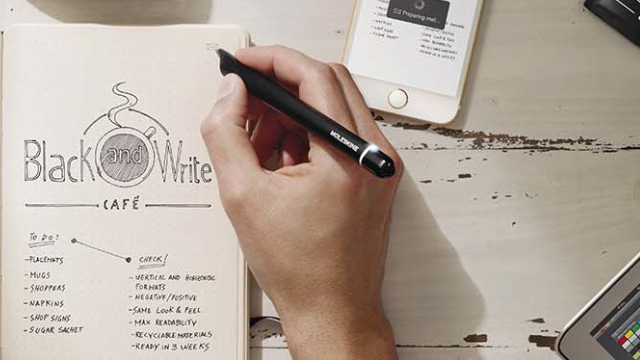 Black and Write
CAFÉ
TO DO:
-PLACEMATS
-MUGS
-SHOPPERS
-NAPKINS
-SHOP SIGNS
-SUGAR SACHET
CHECK!
-VERTICAL AND HORIZONTAL
FORMATS
-NEGATIVE/POSITIVE
-SAME LOOK & FEEL
-MAX READABILITY
-RECYCLABLE MATERIALS
-READY IN 3 WEEKS
MOLESKINE
Preparing mail...